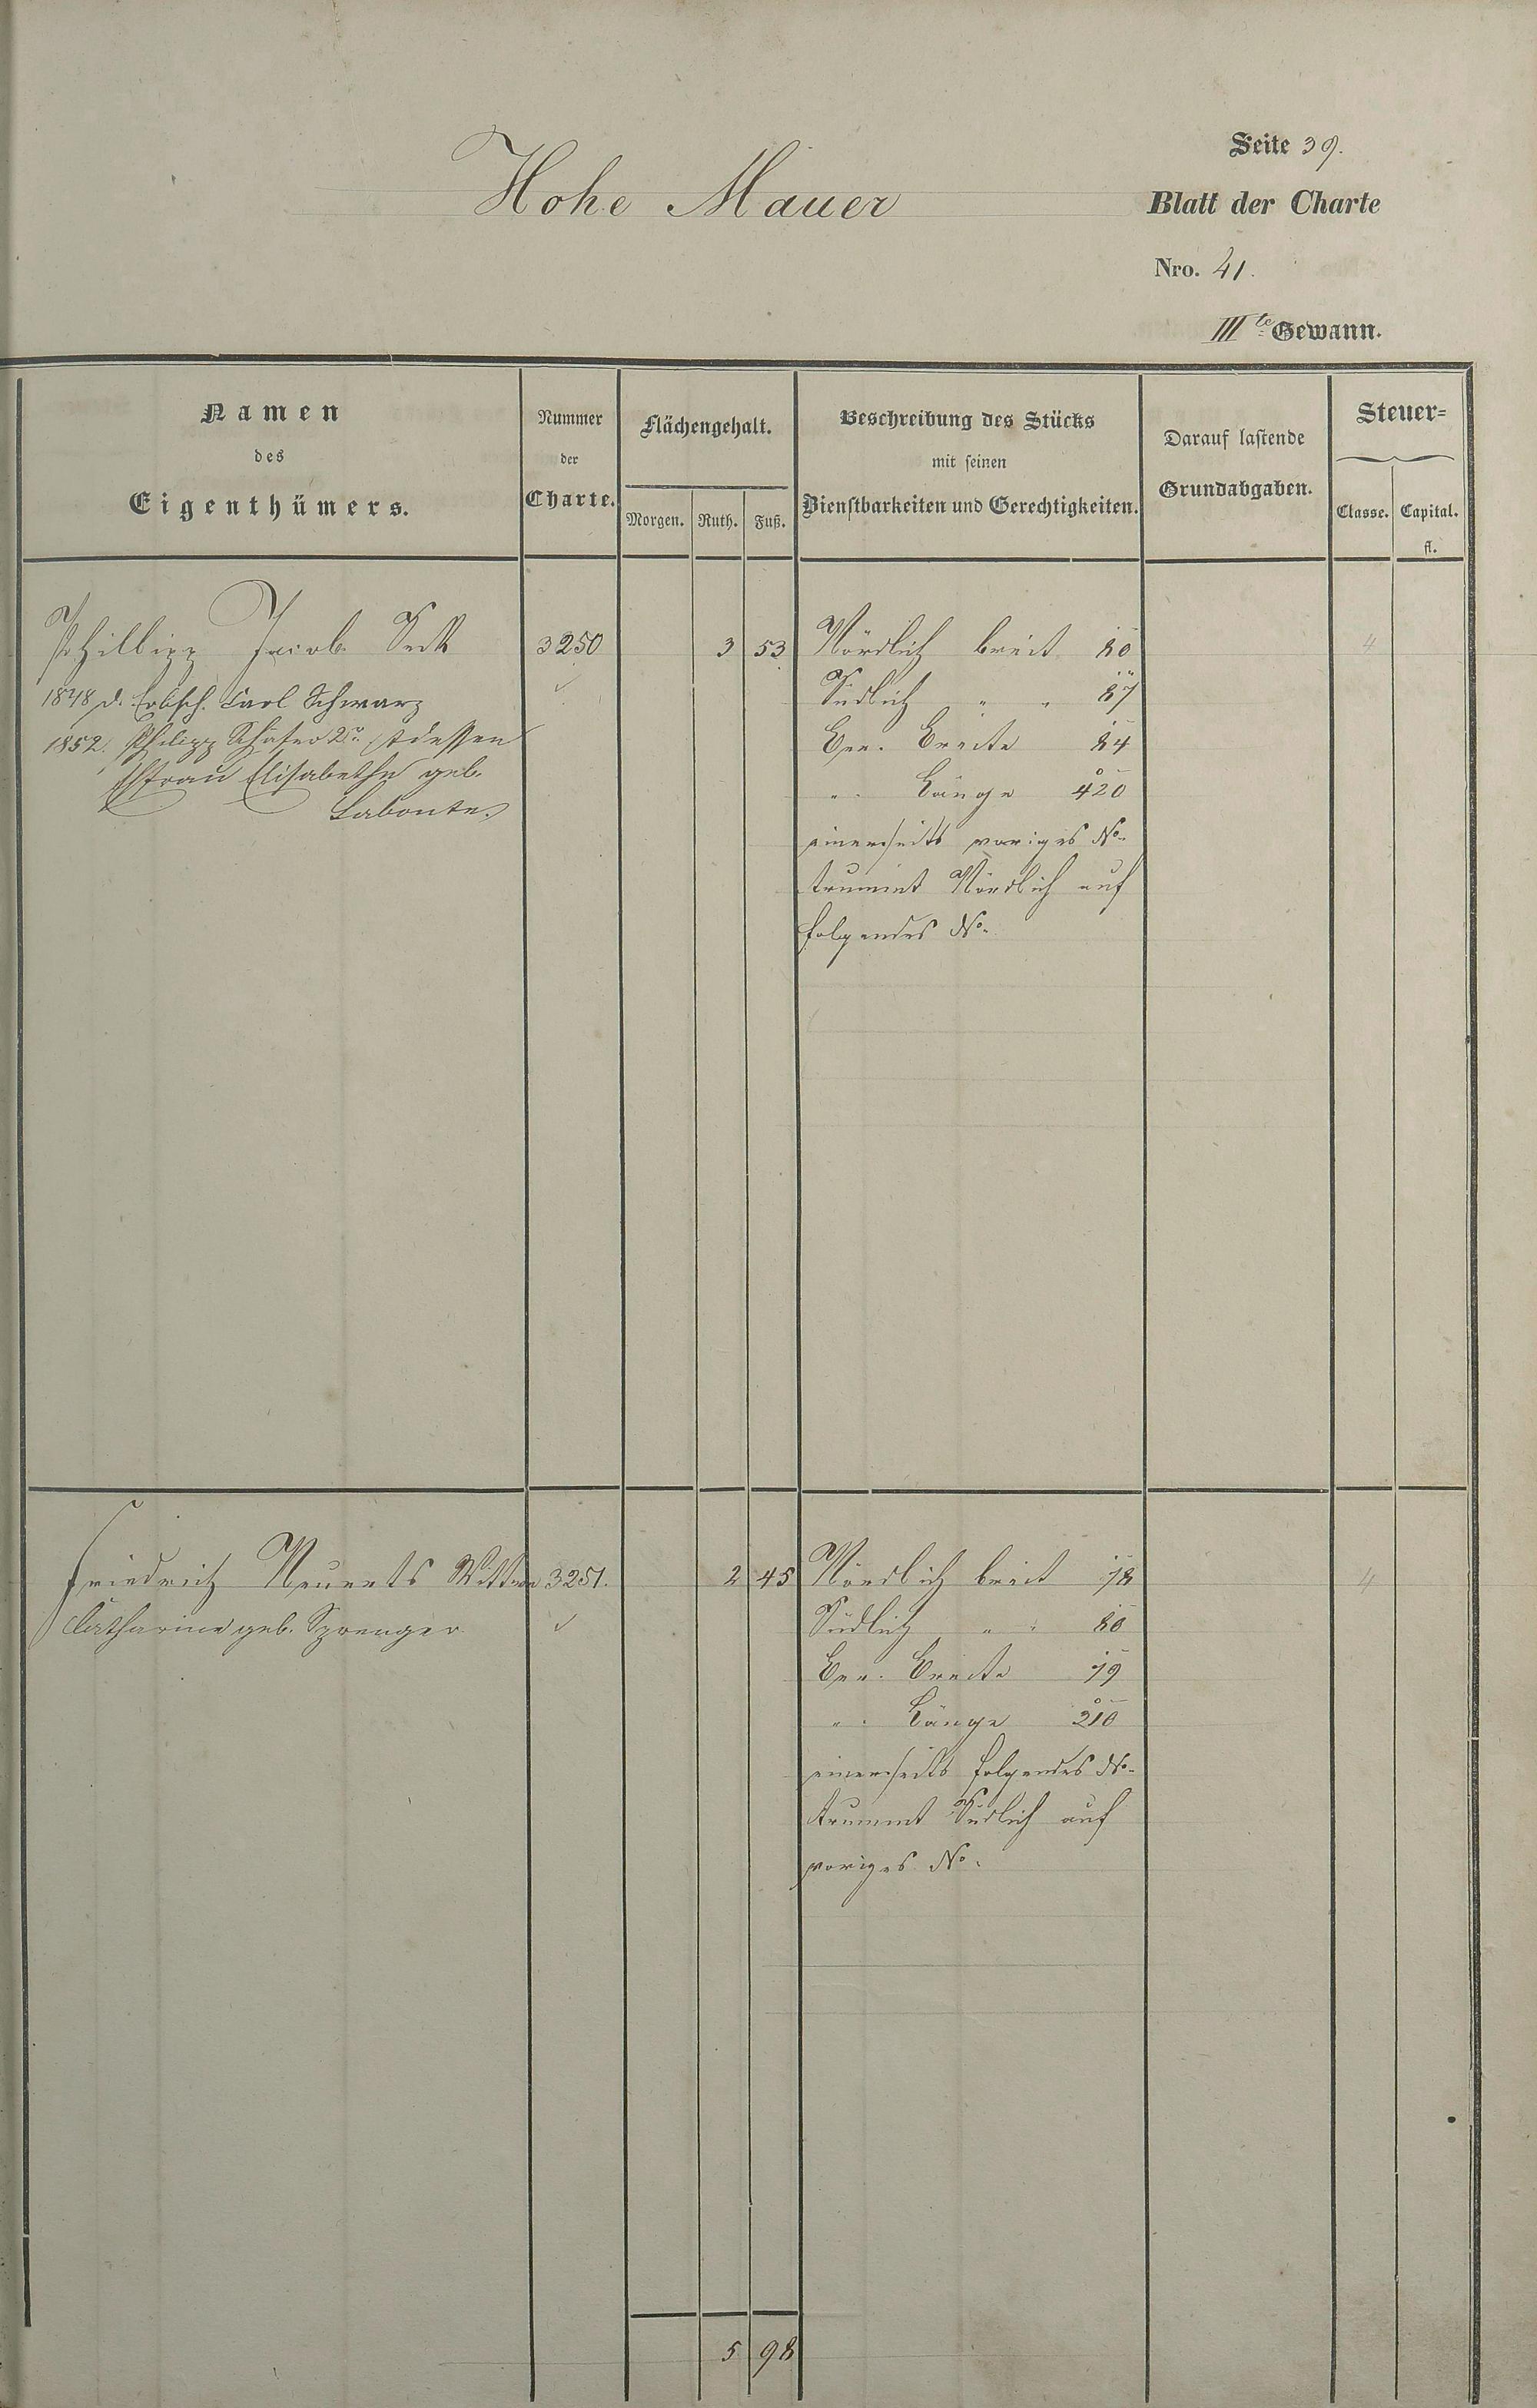 Hohe Mauer
Seite 39.
Blatt der Charte
Nro. 41.
IIIte Gewann.
Namen
des
Eigenthümers.
Nummer
der
Charte.
Flächengehalt.
Morgen. Ruth. Fuß.
Beschreibung des Stücks
mit seinen
Dienstbarkeiten und Gerechtigkeiten.
Darauf lastende
Grundabgaben.
Steuer=
Classe. Capital.
fl.
Phillipp Jacob 3250 3 53 Nördlich breit 80 4
1848 d. Erbsch. Carl Schwarz
Südlich " " 87
1852. Philipp Schäfer 2r
Ber. Breite 84
Ehfrau Elisabetha geb.
" Länge 420
Labonte.
einerseits voriges No.
Nördlich auf
folgendes No.
Friedrich Wittwe 3251. 2 45 Nördlich breit 78 4
Catharina geb. Sprenger
Südlich " " 80
Ber. Breite 79
" Länge 210
einerseits folgendes No.
Südlich auf
voriges No.
5 98